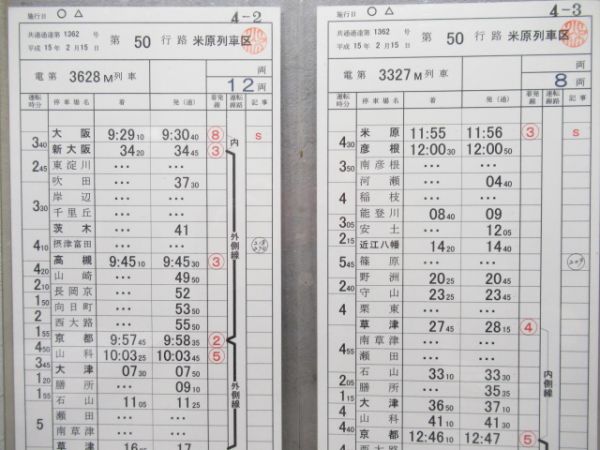 施行日 ○ △ 4-2
共通通達第 1362 号
平成 15 年 2 月 15 日 第 50 行路 米原列車区
電第 3628M 列車 両
12 両
運転時分 停車場名 着 発(通) 着発線 運転線路 記事
大阪 9:29 10 9:30 40 ⑧ 内 S
3 40 新大阪 34 20 34 45 ③
2 45 東淀川 … …
吹田 … 37 30
岸辺 … …
3 30 千里丘 … …
茨木 … 41 外側線
4 10 摂津富田 … …
高槻 9:45 10 9:45 30 ③
4 20 山崎 … 49 50
2 10 長岡京 … 52
1 50 向日町 … 53 50
2 西大路 … 55 50
1 55 京都 9:57 45 9:58 35 ②
4 50 山科 10:03 25 10:03 45 ⑤
大津 07 30 07 50
1 20 膳所 … 09 10
石山 11 05 11 25 外側線
瀬田 … …
5 南草津 … …
草津 16 45 17
施行日 ○ △ 4-3
共通通達第 1362 号
平成 15 年 2 月 15 日 第 50 行路 米原列車区
電第 3327M 列車 両
8 両
運転時分 停車場名 着 発(通) 着発線 運転線路 記事
米原 11:55 11:56 ③ S
4 30 彦根 12:00 30 12:00 50
3 50 南彦根 … …
河瀬 … 04 40
4 稲枝 … …
能登川 08 40 09
3 05 安土 … 12 05
2 15 近江八幡 14 20 14 40
5 45 篠原 … …
野洲 20 25 20 45
2 40 守山 23 25 23 45
4 栗東 … …
草津 27 45 28 15 ④
南草津 … …
4 55 瀬田 … …
石山 33 10 33 30 内側線
2 05 膳所 … …
大津 36 50 37 10
4 山科 41 10 41 30
京都 12:46 10 12:47 ⑤